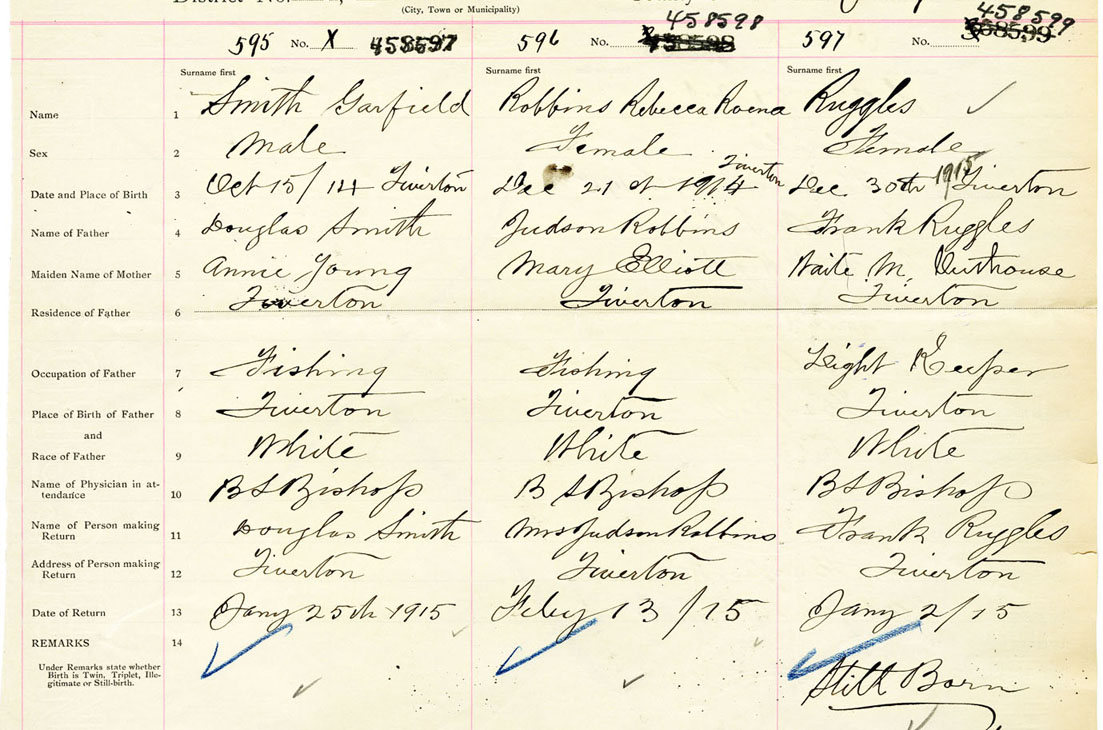 (City, Town or Municipality)
595 No. X 458597
596 No. 458598
597 No. 458599
Surname first Surname first Surname first
Name 1 Smith Garfield Robbins Rebecca Rovena Ruggles
Sex 2 Male Female Female
Date and Place of Birth 3 Oct 15/14 Tiverton Dec 21st 1914 Tiverton Dec 30th 1915 Tiverton
Name of Father 4 Douglas Smith Judson Robbins Frank Ruggles
Maiden Name of Mother 5 Annie Young Mary Elliott M. Outhouse
Residence of Father 6 Tiverton Tiverton Tiverton
Occupation of Father 7 Fishing Fishing Light Keeper
Place of Birth of Father 8 Tiverton Tiverton Tiverton
and
Race of Father 9 White White White
Name of Physician in at-
tendance 10 B S Bishop B S Bishop B S Bishop
Name of Person making
Return 11 Douglas Smith Mrs Judson Robbins Frank Ruggles
Address of Person making
Return 12 Tiverton Tiverton Tiverton
Date of Return 13 Jany 25th 1915 Feby 13/15 Jany 2/15
REMARKS 14
Under Remarks state whether
Birth is Twin, Triplet, Ille-
gitimate or Still-birth.
Still Born